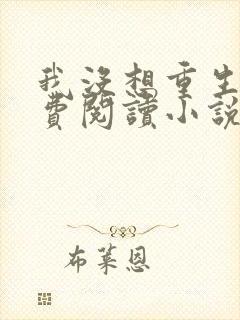 我沒想重生
費閱讀小說
布萊恩